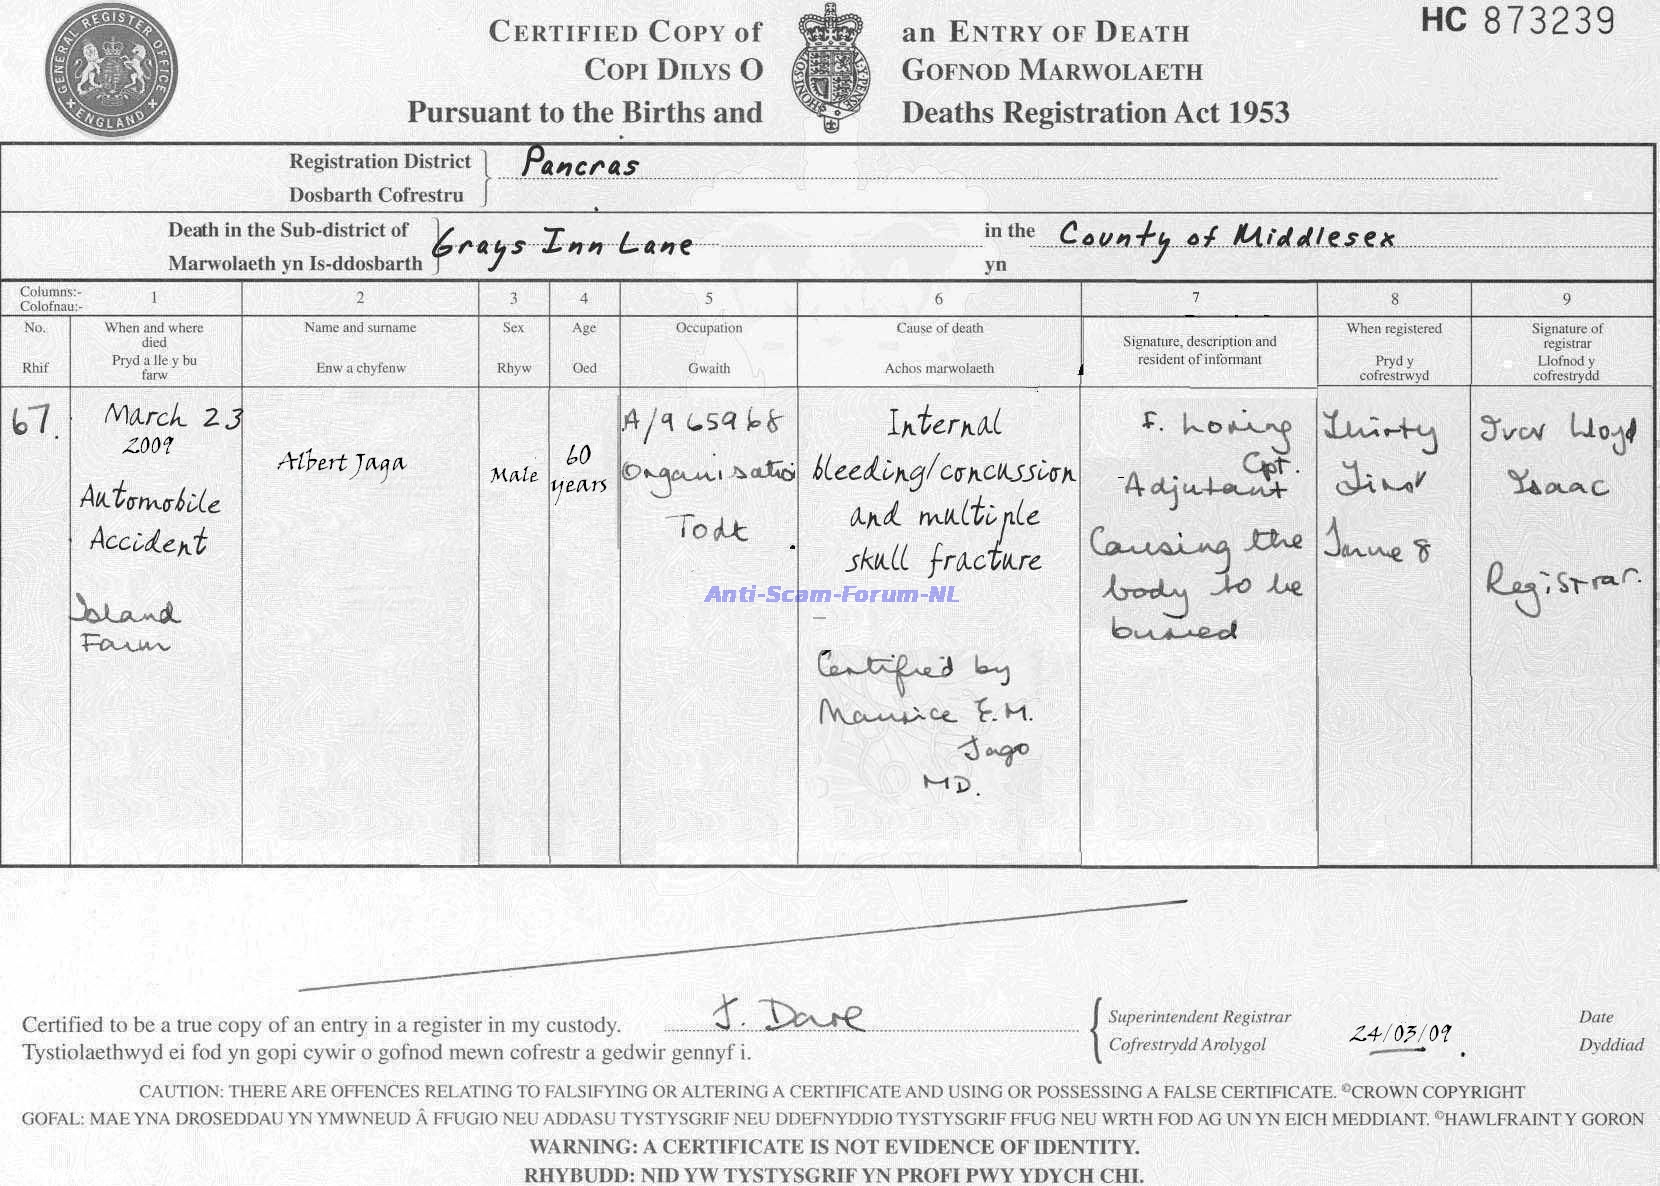 GENERAL REGISTER OFFICE
ENGLAND
CERTIFIED COPY of an ENTRY OF DEATH
COPI DILYS O GOFNOD MARWOLAETH
Pursuant to the Births and Deaths Registration Act 1953
HC 873239
Registration District Pancras
Dosbarth Cofrestru
Death in the Sub-district of Grays Inn Lane in the County of Middlesex
Marwolaeth yn Is-ddosbarth yn
Columns:- 1 2 3 4 5 6 7 8 9
Colofnau:-
No.
Rhif
When and where
died
Pryd a lle y bu
farw
Name and surname
Enw a chyfenw
Sex
Rhyw
Age
Oed
Occupation
Gwaith
Cause of death
Achos marwolaeth
Signature, description and
resident of informant
When registered
Pryd y
cofrestrwyd
Signature of
registrar
Llofnod y
cofrestrydd
67.
March 23
2009
Automobile
Accident
Island
Farm
Albert Jaga
Male
60
years
A/965968
Organisatio
Todt
Internal
bleeding/concussion
and multiple
skull fracture
Certified by
Maurice E.M.
Jago
MD.
F. Loring
Cpt.
Adjutant
Causing the
body to be
buried
Thirty
June 8
Ivor Lloyd
Isaac
Registrar.
Anti-Scam-Forum-NL
Certified to be a true copy of an entry in a register in my custody. J. Dare Superintendent Registrar 24/03/09 Date
Tystiolaethwyd ei fod yn gopi cywir o gofnod mewn cofrestr a gedwir gennyf i. Cofrestrydd Arolygol Dyddiad
CAUTION: THERE ARE OFFENCES RELATING TO FALSIFYING OR ALTERING A CERTIFICATE AND USING OR POSSESSING A FALSE CERTIFICATE. ©CROWN COPYRIGHT
GOFAL: MAE YNA DROSEDDAU YN YMWNEUD Â FFUGIO NEU ADDASU TYSTYSGRIF NEU DDEFNYDDIO TYSTYSGRIF FFUG NEU WRTH FOD AG UN YN EICH MEDDIANT. ©HAWLFRAINT Y GORON
WARNING: A CERTIFICATE IS NOT EVIDENCE OF IDENTITY.
RHYBUDD: NID YW TYSTYSGRIF YN PROFI PWY YDYCH CHI.